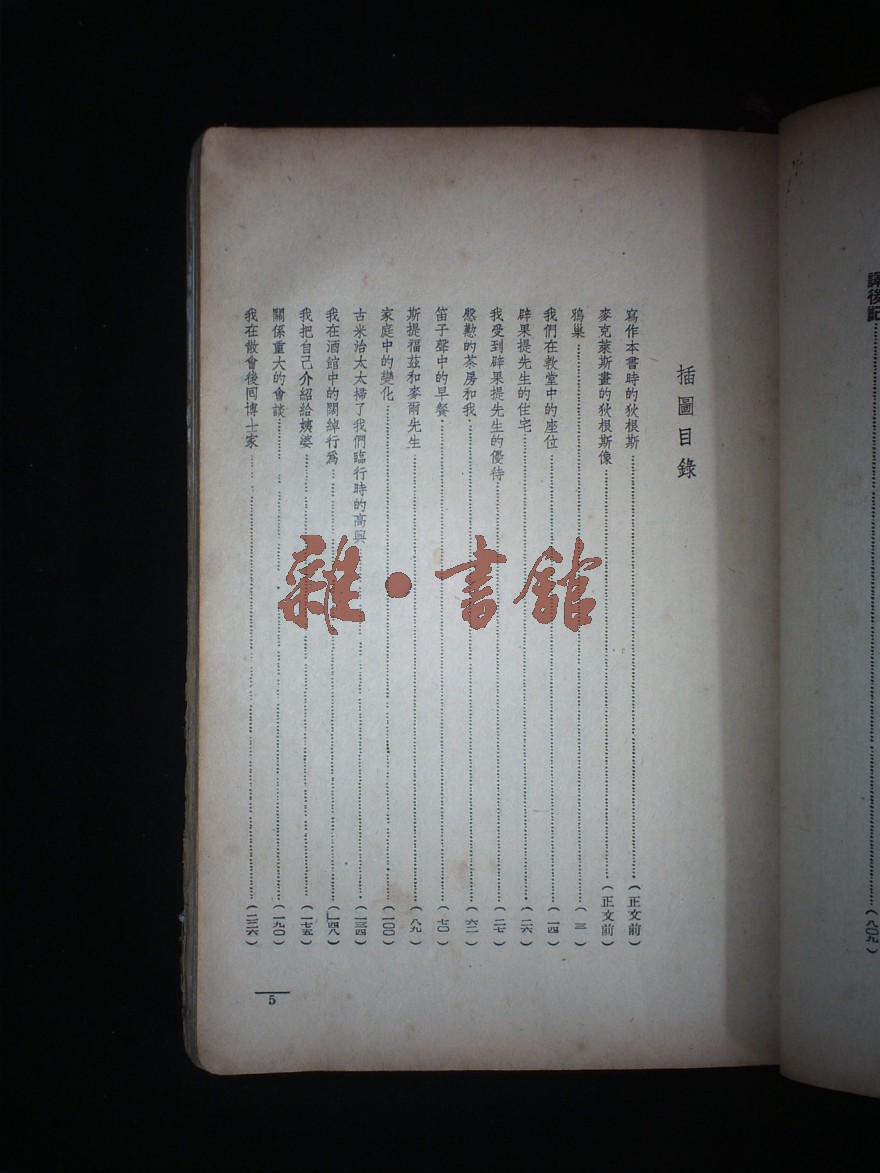 譯後記……（八〇九）
插圖目錄
寫作本書時的狄根斯……（正文前）
麥克萊斯畫的狄根斯像……（正文前）
鴉巢……（三）
我們在教堂中的座位……（一四）
辟果提先生的住宅……（二六）
我受到辟果提先生的優待……（二七）
慇懃的茶房和我……（六二）
笛子聲中的早餐……（七〇）
斯提福茲和麥爾先生……（八九）
家庭中的變化……（一〇〇）
古米治太太掃了我們臨行時的高興……（一三四）
我在酒館中的闊綽行爲……（一四八）
我把自己介紹給姨婆……（一七五）
關係重大的會談……（一九〇）
我在散會後同博士家……（二三六）
5
雜·書館